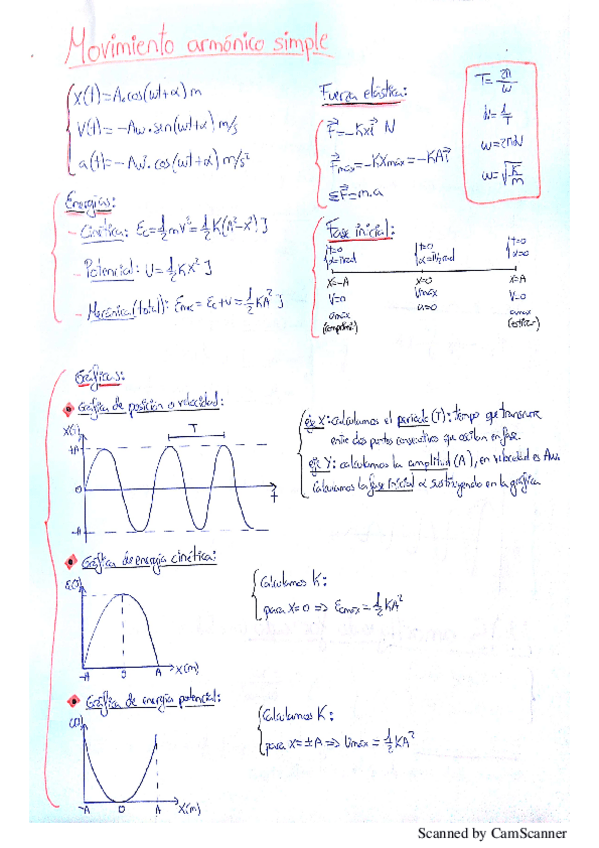 Movimiento armónico simple
x(t)=A·cos(ωt+α) m
v(t)=-Aω·sen(ωt+α) m/s
a(t)=-Aω²·cos(ωt+α) m/s²
Fuerza elástica:
F=-Kx N
Fmáx=-KXmáx=-KA
ΣF=m·a
T=2π/ω
ω=2πν
ω=√K/m
Energías:
- Cinética: Ec=1/2mv²=1/2K(A²-x²) J
- Potencial: U=1/2Kx² J
- Mecánica(total): Emec=Ec+U=1/2KA² J
Fase inicial:
t=0 t=0 t=0
α=π rad α=π/2 rad
x=-A x=0 x=A
V=0 Vmáx V=0
amáx a=0 amáx
(comprimir) (estirar)
Gráficas:
Gráfica de posición o velocidad:
x(t)
+A
T
0
t
-A
eje X: calculamos el periodo (T): tiempo que transcurre
entre dos puntos consecutivos que oscilan en fase.
eje Y: calculamos la amplitud (A), en velocidad es Aω.
Calculamos la fase inicial α sustituyendo en la gráfica
Gráfica de energía cinética:
E(J)
-A 0 A x(m)
Calculamos K:
para x=0 => Ecmáx=1/2KA²
Gráfica de energía potencial:
-A 0 A x(m)
Calculamos K:
para x=±A => Umáx=1/2KA²
Scanned by CamScanner